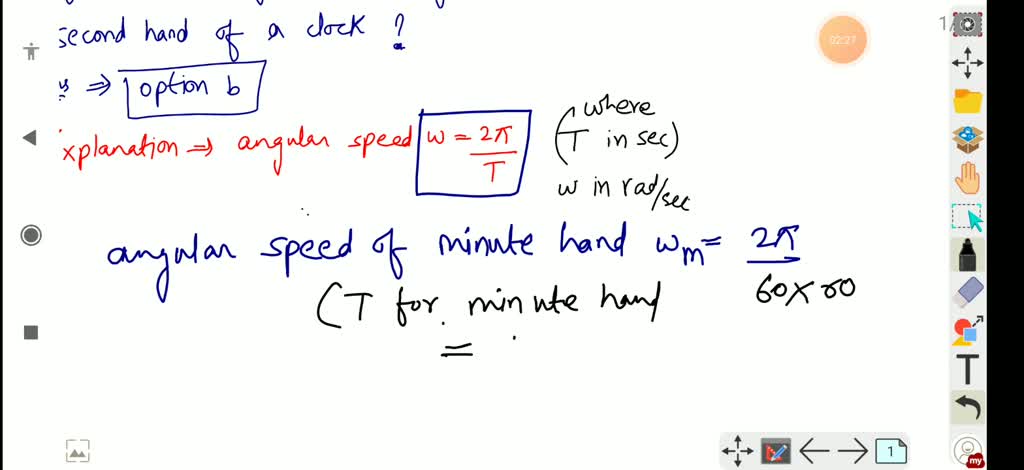 second hand of a clock ?
⇒ option b
xplanation ⇒ angular speed ω = 2π/T (where T in sec)
ω in rad/sec
angular speed of minute hand ωm = 2π/60×60
(T for minute hand
=
02:27
1
T
1
my